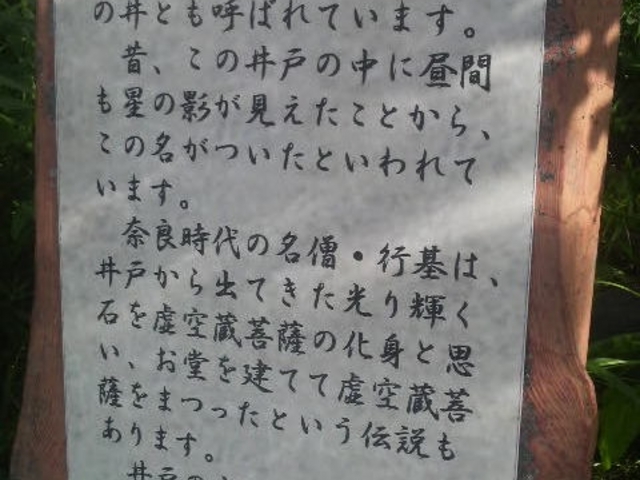 の井とも呼ばれています。
昔、この井戸の中に昼間
も星の影が見えたことから、
この名がついたといわれて
います。
奈良時代の名僧・行基は、
井戸から出てきた光り輝く
石を虚空蔵菩薩の化身と思
い、お堂を建てて虚空蔵菩
薩をまつったという伝説も
あります。
井戸の